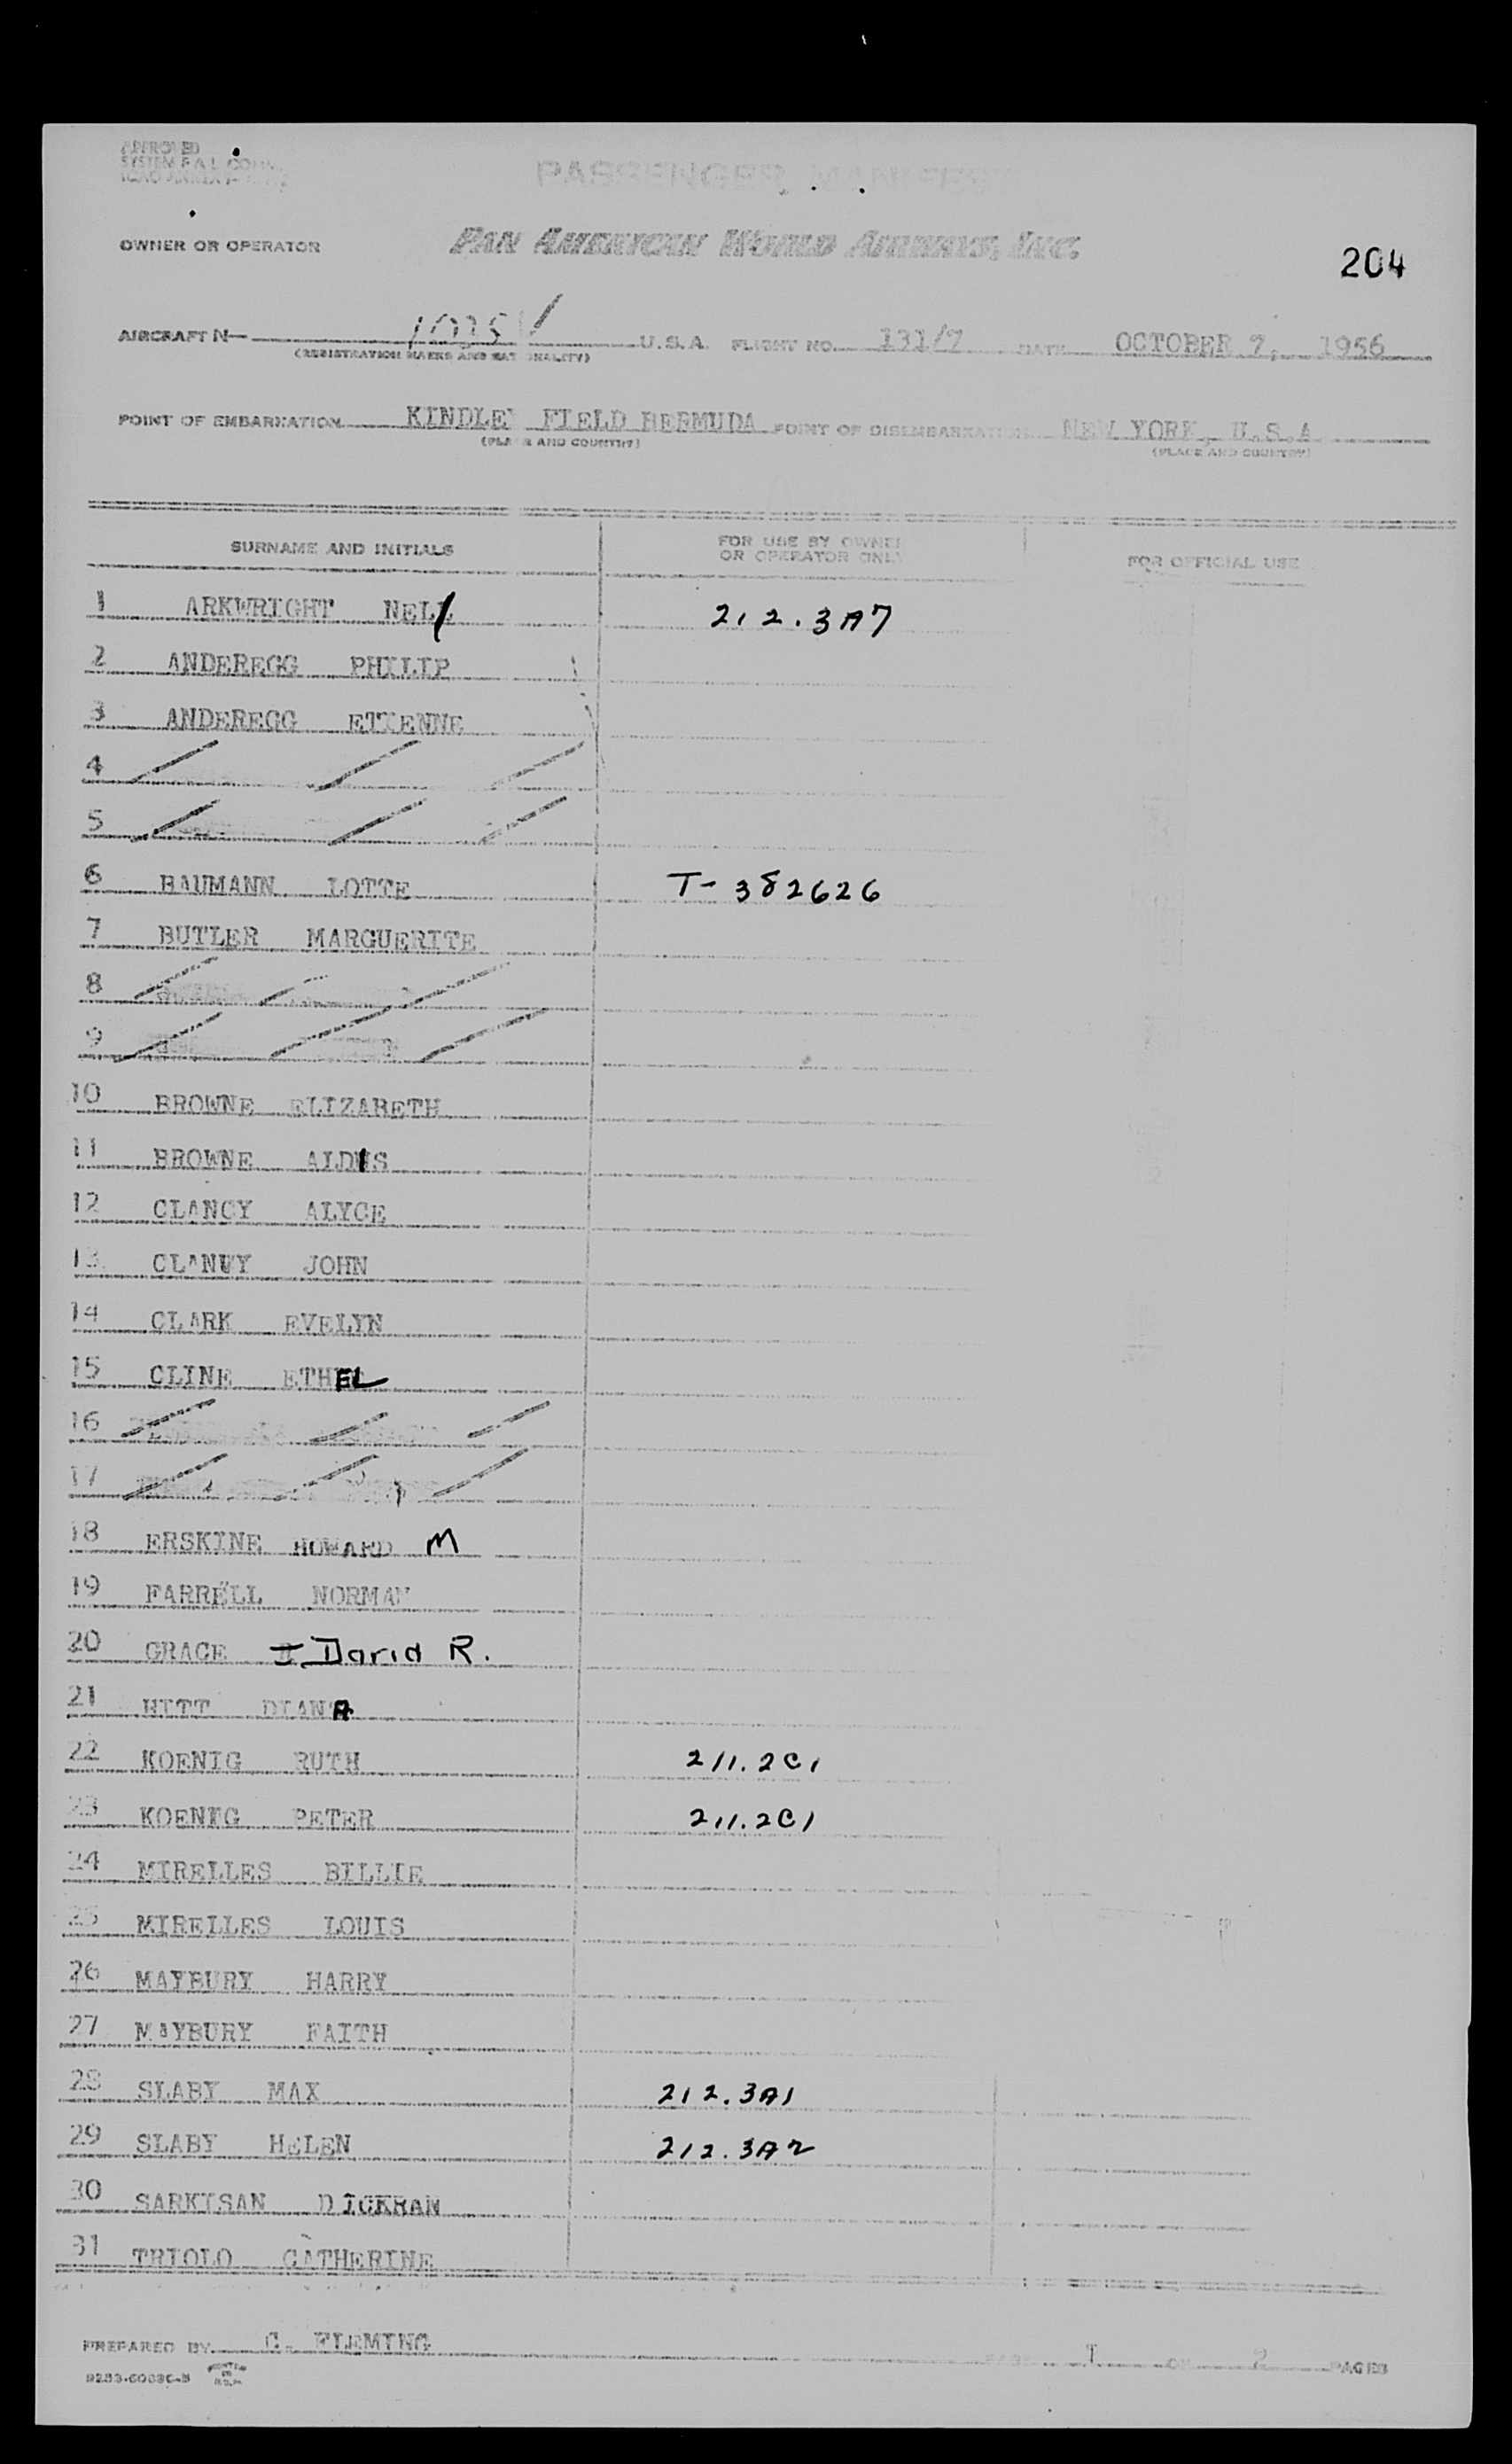 APPROVED
PASSENGER MANIFEST
OWNER OR OPERATOR PAN AMERICAN WORLD AIRWAYS, INC.
204
AIRCRAFT N— U.S.A. FLIGHT NO. 131/7 DATE OCTOBER 7, 1956
(REGISTRATION MARKS AND NATIONALITY)
POINT OF EMBARKATION KINDLEY FIELD BERMUDA POINT OF DISEMBARKATION NEW YORK, U.S.A
(PLACE AND COUNTRY) (PLACE AND COUNTRY)
SURNAME AND INITIALS FOR USE BY OWNER OR OPERATOR ONLY FOR OFFICIAL USE
1 ARKWRIGHT NELL 212.3A7
2 ANDEREGG PHILIP
3 ANDEREGG ETIENNE
4
5
6 BAUMANN LOTTE T-382626
7 BUTLER MARGUERITE
8
9
10 BROWNE ELIZABETH
11 BROWNE ALDIS
12 CLANCY ALYCE
13 CLANCY JOHN
14 CLARK EVELYN
15 CLINE ETHEL
16
17
18 ERSKINE HOWARD M
19 FARRELL NORMAN
20 GRACE David R.
21 HITT DIANA
22 KOENIG RUTH 211.2C1
23 KOENIG PETER 211.2C1
24 MIRELLES BILLIE
25 MIRELLES LOUIS
26 MAYBURY HARRY
27 MAYBURY FAITH
28 SLABY MAX 212.3A1
29 SLABY HELEN 212.3A2
30 SARKISAN DICKRAN
31 TRIOLO CATHERINE
PREPARED BY C. FLEMING PAGE 1 OF 2 PAGES